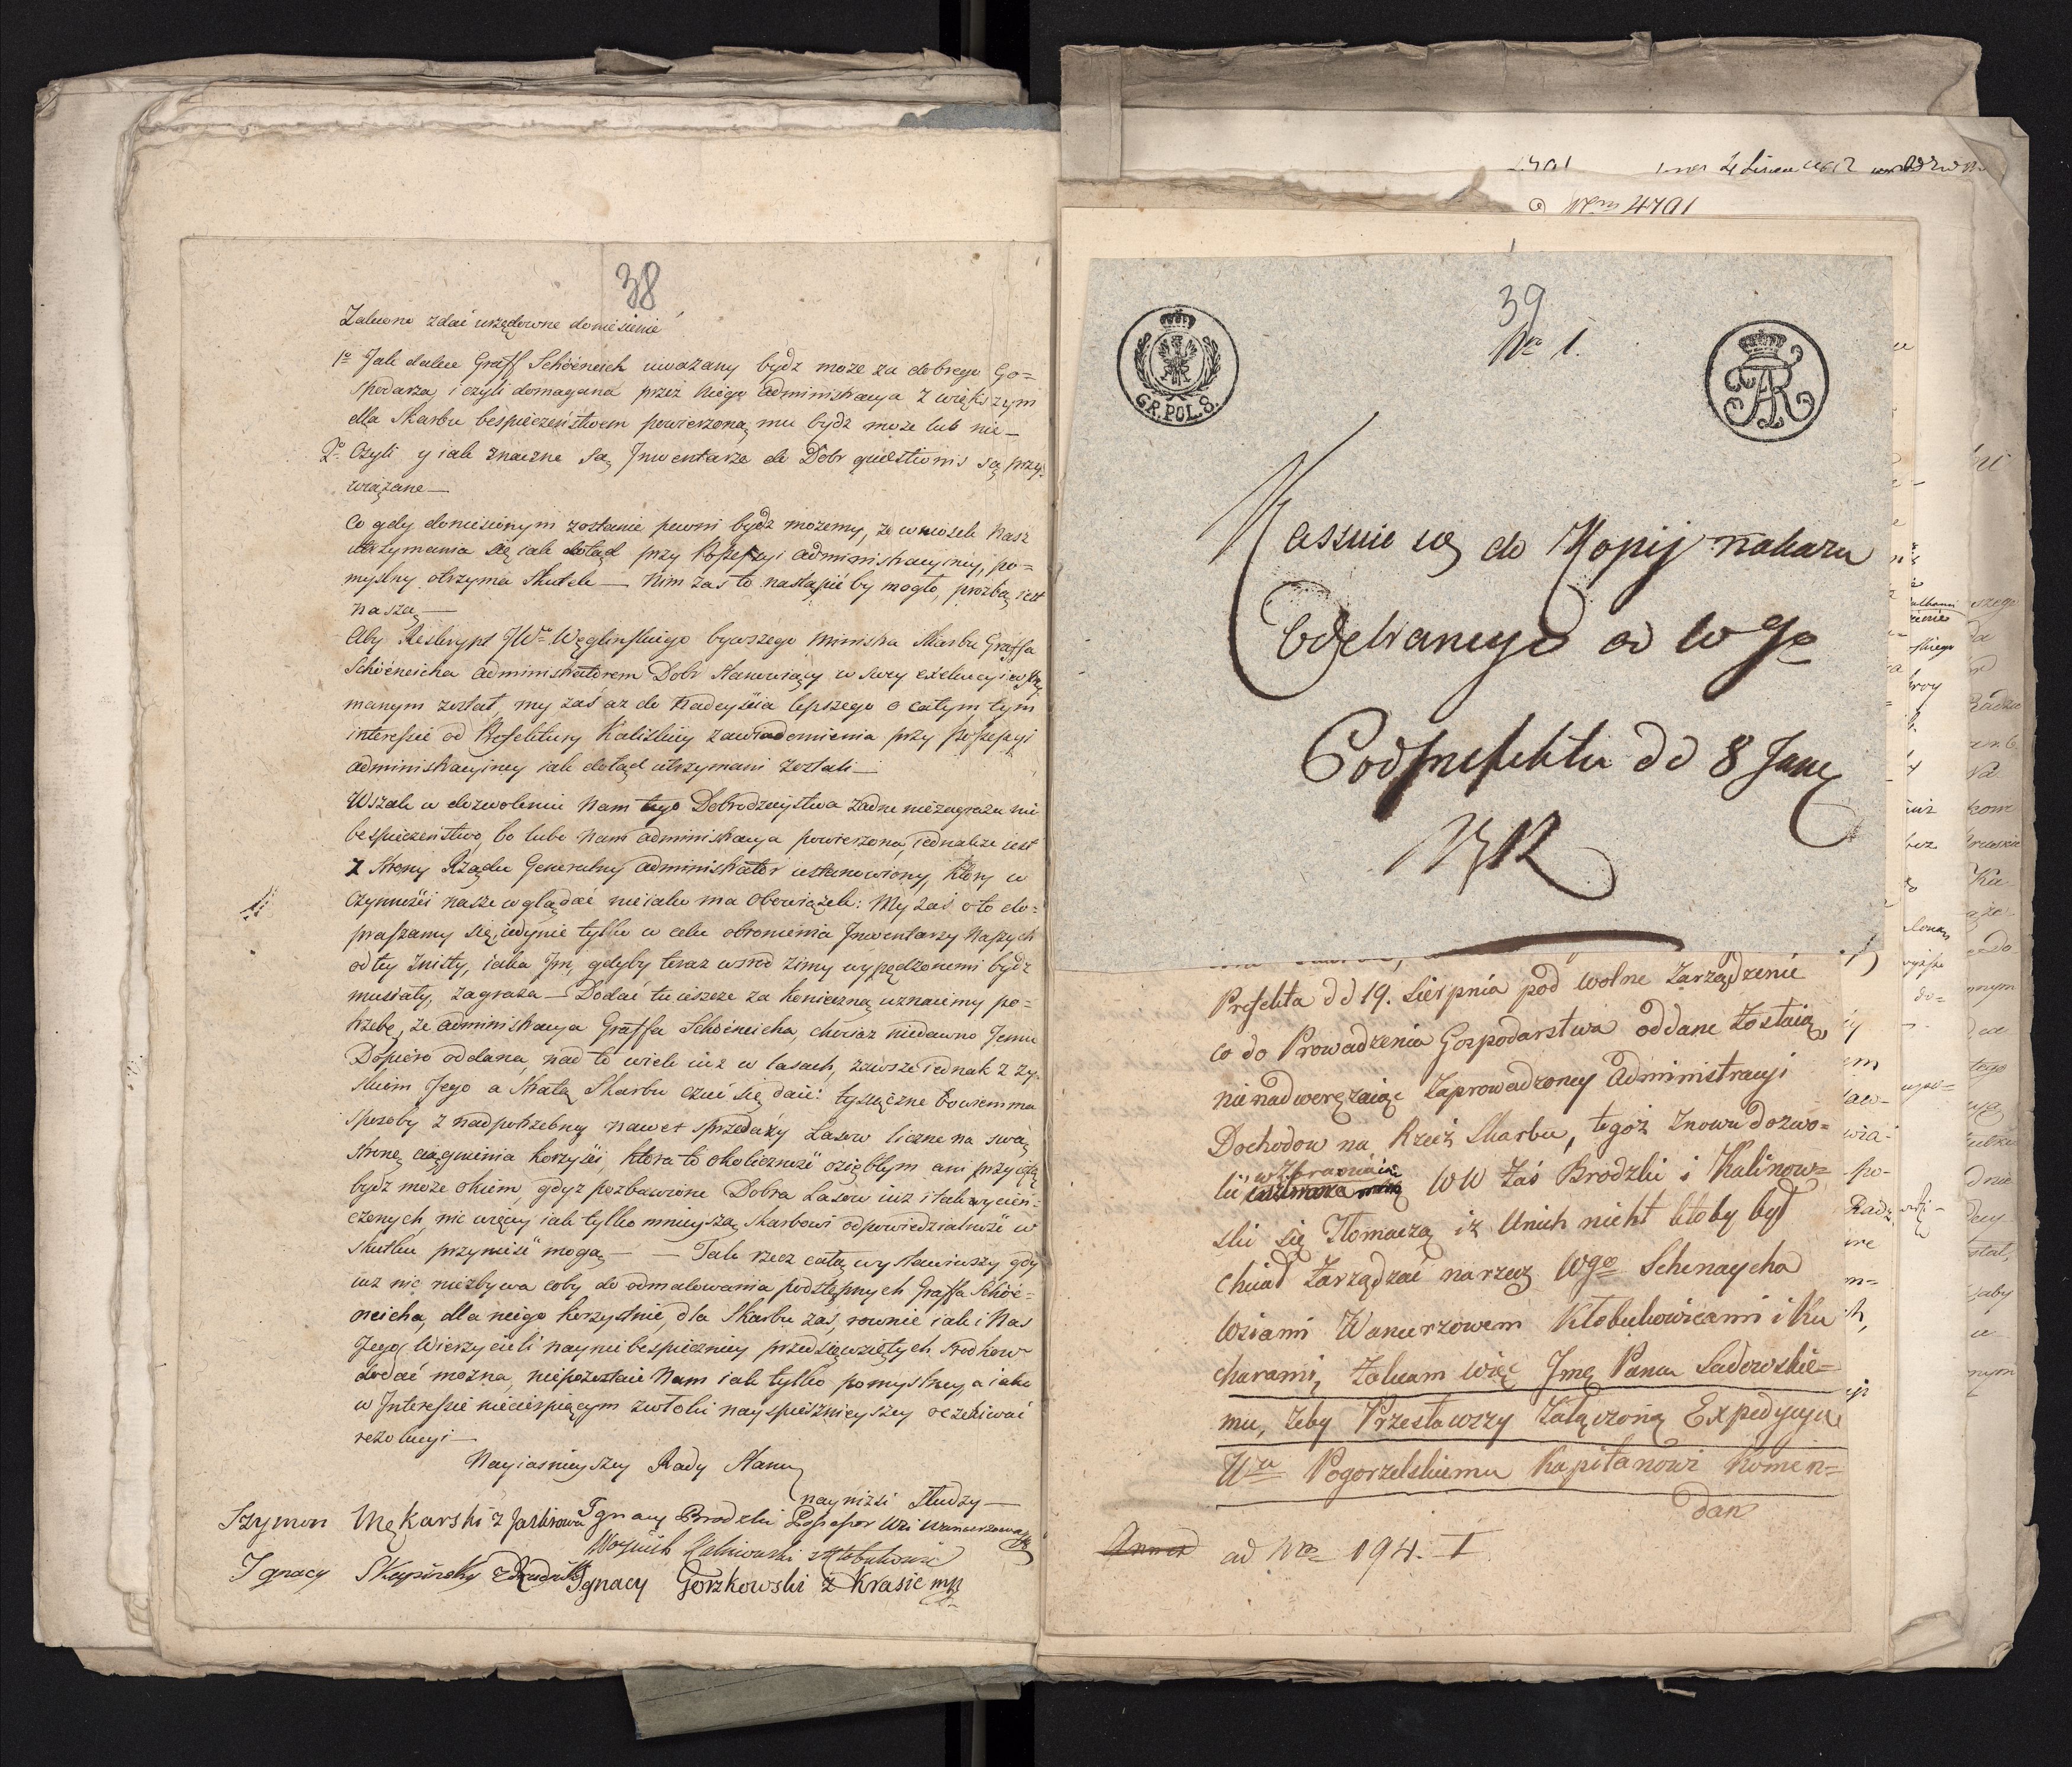 38
Zalecono zdać urzędowne doniesienie
1º Jak dalece Graff Schöeneich uwazany bydz moze za dobrego Go=
spodarza, i czyli domagana przez niego administracya z większym
dla Skarbu bespieczeństwem powierzoną mu bydz moze lub nie—
2º Czyli y iak znaczne są Inwentarze do Dobr questionis są przy-
wiązane—
Co gdy doniesionym zostanie, pewni bydz możemy, że wniosek Nasz
utrzymania się iak dotąd przy Possessyi administracyiney, po=
myslny otrzyma skutek— Nim zas to nastąpić by mogło, prozbą iest
naszą—
Aby Reskrypt JWº Węglinskiego bywszego Ministra Skarbu Graffa
Schöeneicha administratorem Dobr stanowiący w swey exekucyi wstrzy
manym został, my zaś az do nadeyścia lepszego o całym tym
interessie od Prefektury Kaliskiey zawiadomienia przy possessyi
administracyiney iak dotąd utrzymani zostali—
Wszak w dozwoleniu Nam tego Dobrodzieystwa żadne niezagraża nie
bespieczeństwo, bo lubo Nam administracya powierzona, iednakże iest
z strony Rządu Generalny administrator ustanowiony, który w
czynności nasze wglądać nieiako ma obowiązek: My zaś o to do=
praszamy się, iedynie tylko w celu ochronienia Inwentarzy Naszych
od tey zniszty, iaka Im, gdyby teraz wsrod zimy wypędzonemi bydz
musiały, zagraża— Dodać tu ieszcze za konieczną uznaiemy po=
trzebę, że administracya Graffa Schöeneicha, chociaz niedawno Jemu
Dopiero oddana, nad to wiele iuz w lasach, zawsze iednak z zy-
skiem Jego a stratą Skarbu czuć się daie: tysiączne bowiem ma
sposoby z nadpotrzebney nawet sprzedaży Lasow liczne na swą
stronę ciągnienia korzyści, która to okoliczność oziębłym ani przyiętą
bydz może okiem, gdyz pozbawione Dobra Lasow iuz i tak wycień-
czonych, nic więcey iak tylko mnieyszą Skarbowi odpowiedzialność w
skutku przynieść mogą— — Tak rzecz całą wystawiwszy gdy
iuz nic niezbywa coby do odmalowania podstępnych Graffa Schöe=
neicha, dla niego korzystnie, dla Skarbu zaś, rownie iak i Nas
Jego Wierzycieli naynie bespieczniey przedsięwziętych srodkow
dodać można, niepozostaie Nam iak tylko pomyslney, a iako
w Interessie niecierpiącym zwłoki nayspieszniejszey oczekiwać
rezolucyi—
Nayiasnieyszey Rady Stanu
nayniżsi Słudzy—
Szymon Mękarski z Ignacy Brodzki Possessor Wsi Wancerzowa
Woyciech Kalinowski z Kłobukowic
Ignacy Skupinsky Ignacy Gorzkowski z Krasic mp
Nem 4791
39
Nro 1.
GR. POL. 8.
Kassuie się do Kopij nakazu
Odebranego od Wgo
Podprefekta dd 8 January
Prefekta dd 19. Sierpnia pod wolne Zarządzenie
co do Prowadzenia Gospodarstwa oddane Zostaią,
nie nadwerężaiąc Zaprowadzoney Administracyi
Dochodow na Rzecz Skarbu, tegoż Znowu dozwo=
lić wzbraniaią WW Zaś Brodzki i Kalinow=
ski się Tłomaczą iż Unich nicht ktoby był
chciał Zarządzać na rzecz Wgo Schenaycha
Wsiami Wancerzowem Kłobukowicami i Ku
charami, Zalecam więc Jmę Panu Sadowskie=
mu, żeby Przesławszy Załączoną Expedycyą
Wu Pogorzelskiemu Kapitanowi Komen=
dan
ad Nro 194. I.